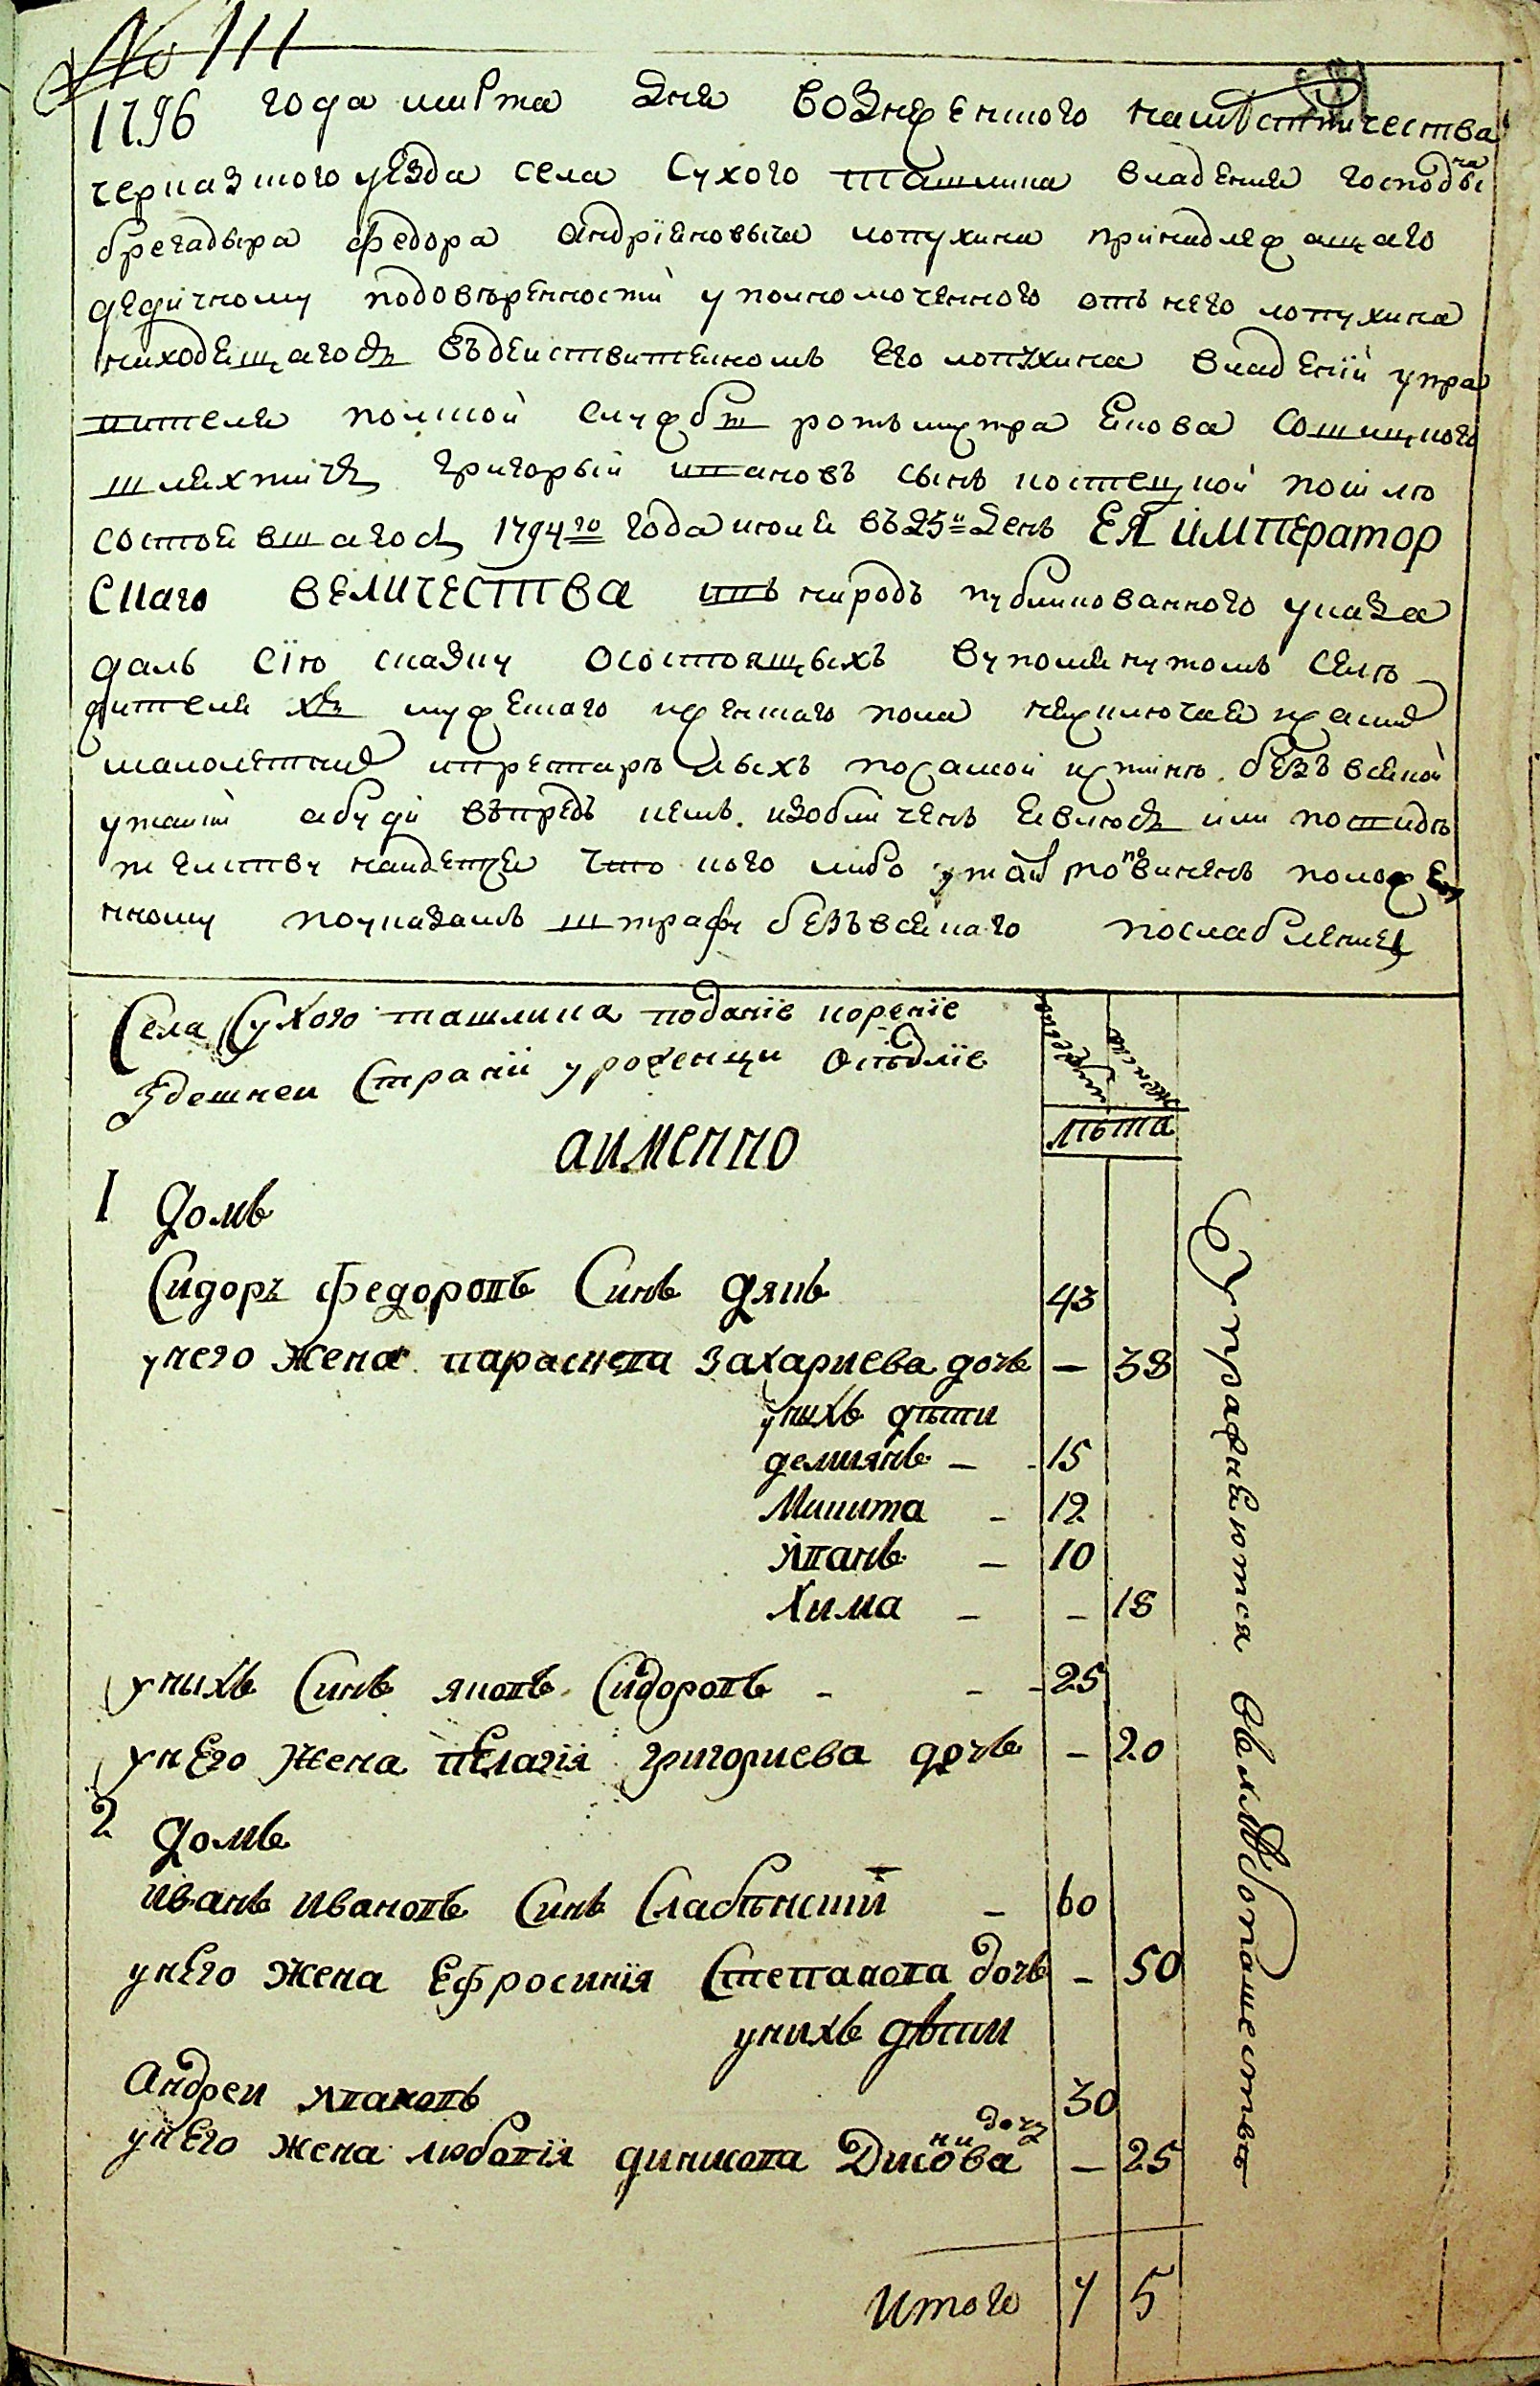 № 111
1796 года марта дня вознесенского намѣстничества
черказкого уезда села Сухого ташлика владения господина
брегадыра федора андрїяновыча лопухина принадлежащаго
дедичному подовѣренности уполномоченного отъ него лопухина
находящагося въдействителномъ его лопухина владении упра
вителя полской службы ротъмистра якова
шляхтича григорый ивановъ сынъ
состоявшагося 1794го года июля въ 23й день ЕЯ ИМПЕратор
скаго ВЕЛИЧЕСТВа въ народъ публикованного указа
далъ сїю сказку осостоящыхъ вупомянутомъ селѣ
жителяхъ мужескаго иженскаго пола невключая исамые
малолетние ипрестарѣлыхъ посамой истиннѣ безъ всякой
утайки абуди въпредь кемъ изобличенъ явлюся или посвидѣ
телству найдется что кого либо утаил то повиненъ положен
нному поуказамъ штрафу безъ всякаго послабления
Села Сухого ташлика поданїе кореніе
Здешнеи Страни уроженци осѣдлїе
мужеска
женска
лѣта
аименно
1 домъ
Сидоръ федоровъ Синъ дякъ 43
унего жена параскева захариева дочь — 38
унихъ дѣти
демиянъ — 15
Микита — 12
иванъ — 10
Хима — — 18
унихъ Синъ яковъ Сидоровъ — — 25
унего жена пелагія григориева дочь — 20
2 домъ
иванъ ивановъ Синъ Слабѣнский — 60
унего жена Ефросинїя Степанова дочь — 50
унихъ дѣти
андреи ивановъ 30
унего жена любовїя динисова дочь — 25
Итого 7 5
Упражняются вхлѣбопашествѣ